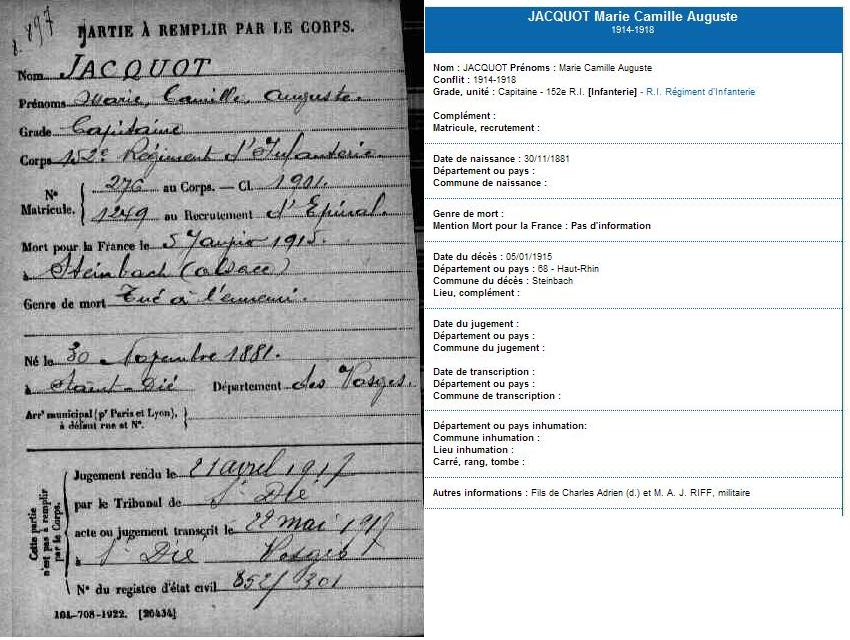 1.897
PARTIE À REMPLIR PAR LE CORPS.
Nom JACQUOT
Prénoms Marie, Camille, Auguste.
Grade Capitaine
Corps 152e Régiment d'Infanterie.
No Matricule. 276 au Corps. — Cl. 1901.
1249 au Recrutement d'Epinal.
Mort pour la France le 5 Janvier 1915.
à Steinbach (Alsace)
Genre de mort Tué à l'ennemi.
Né le 30 Novembre 1881.
à Saint-Dié Département des Vosges.
Arrt municipal (pr Paris et Lyon),
à défaut rue et No.
Cette partie
n'est pas à remplir
par le Corps.
Jugement rendu le 21 avril 1917
par le Tribunal de St Dié
acte ou jugement transcrit le 22 mai 1917
à St Dié Vosges
No du registre d'état civil 852/301
101-708-1922. [26434]
JACQUOT Marie Camille Auguste
1914-1918
Nom : JACQUOT Prénoms : Marie Camille Auguste
Conflit : 1914-1918
Grade, unité : Capitaine - 152e R.I. [Infanterie] - R.I. Régiment d'Infanterie
Complément :
Matricule, recrutement :
Date de naissance : 30/11/1881
Département ou pays :
Commune de naissance :
Genre de mort :
Mention Mort pour la France : Pas d'information
Date du décès : 05/01/1915
Département ou pays : 68 - Haut-Rhin
Commune du décès : Steinbach
Lieu, complément :
Date du jugement :
Département ou pays :
Commune du jugement :
Date de transcription :
Département ou pays :
Commune de transcription :
Département ou pays inhumation:
Commune inhumation :
Lieu inhumation :
Carré, rang, tombe :
Autres informations : Fils de Charles Adrien (d.) et M. A. J. RIFF, militaire